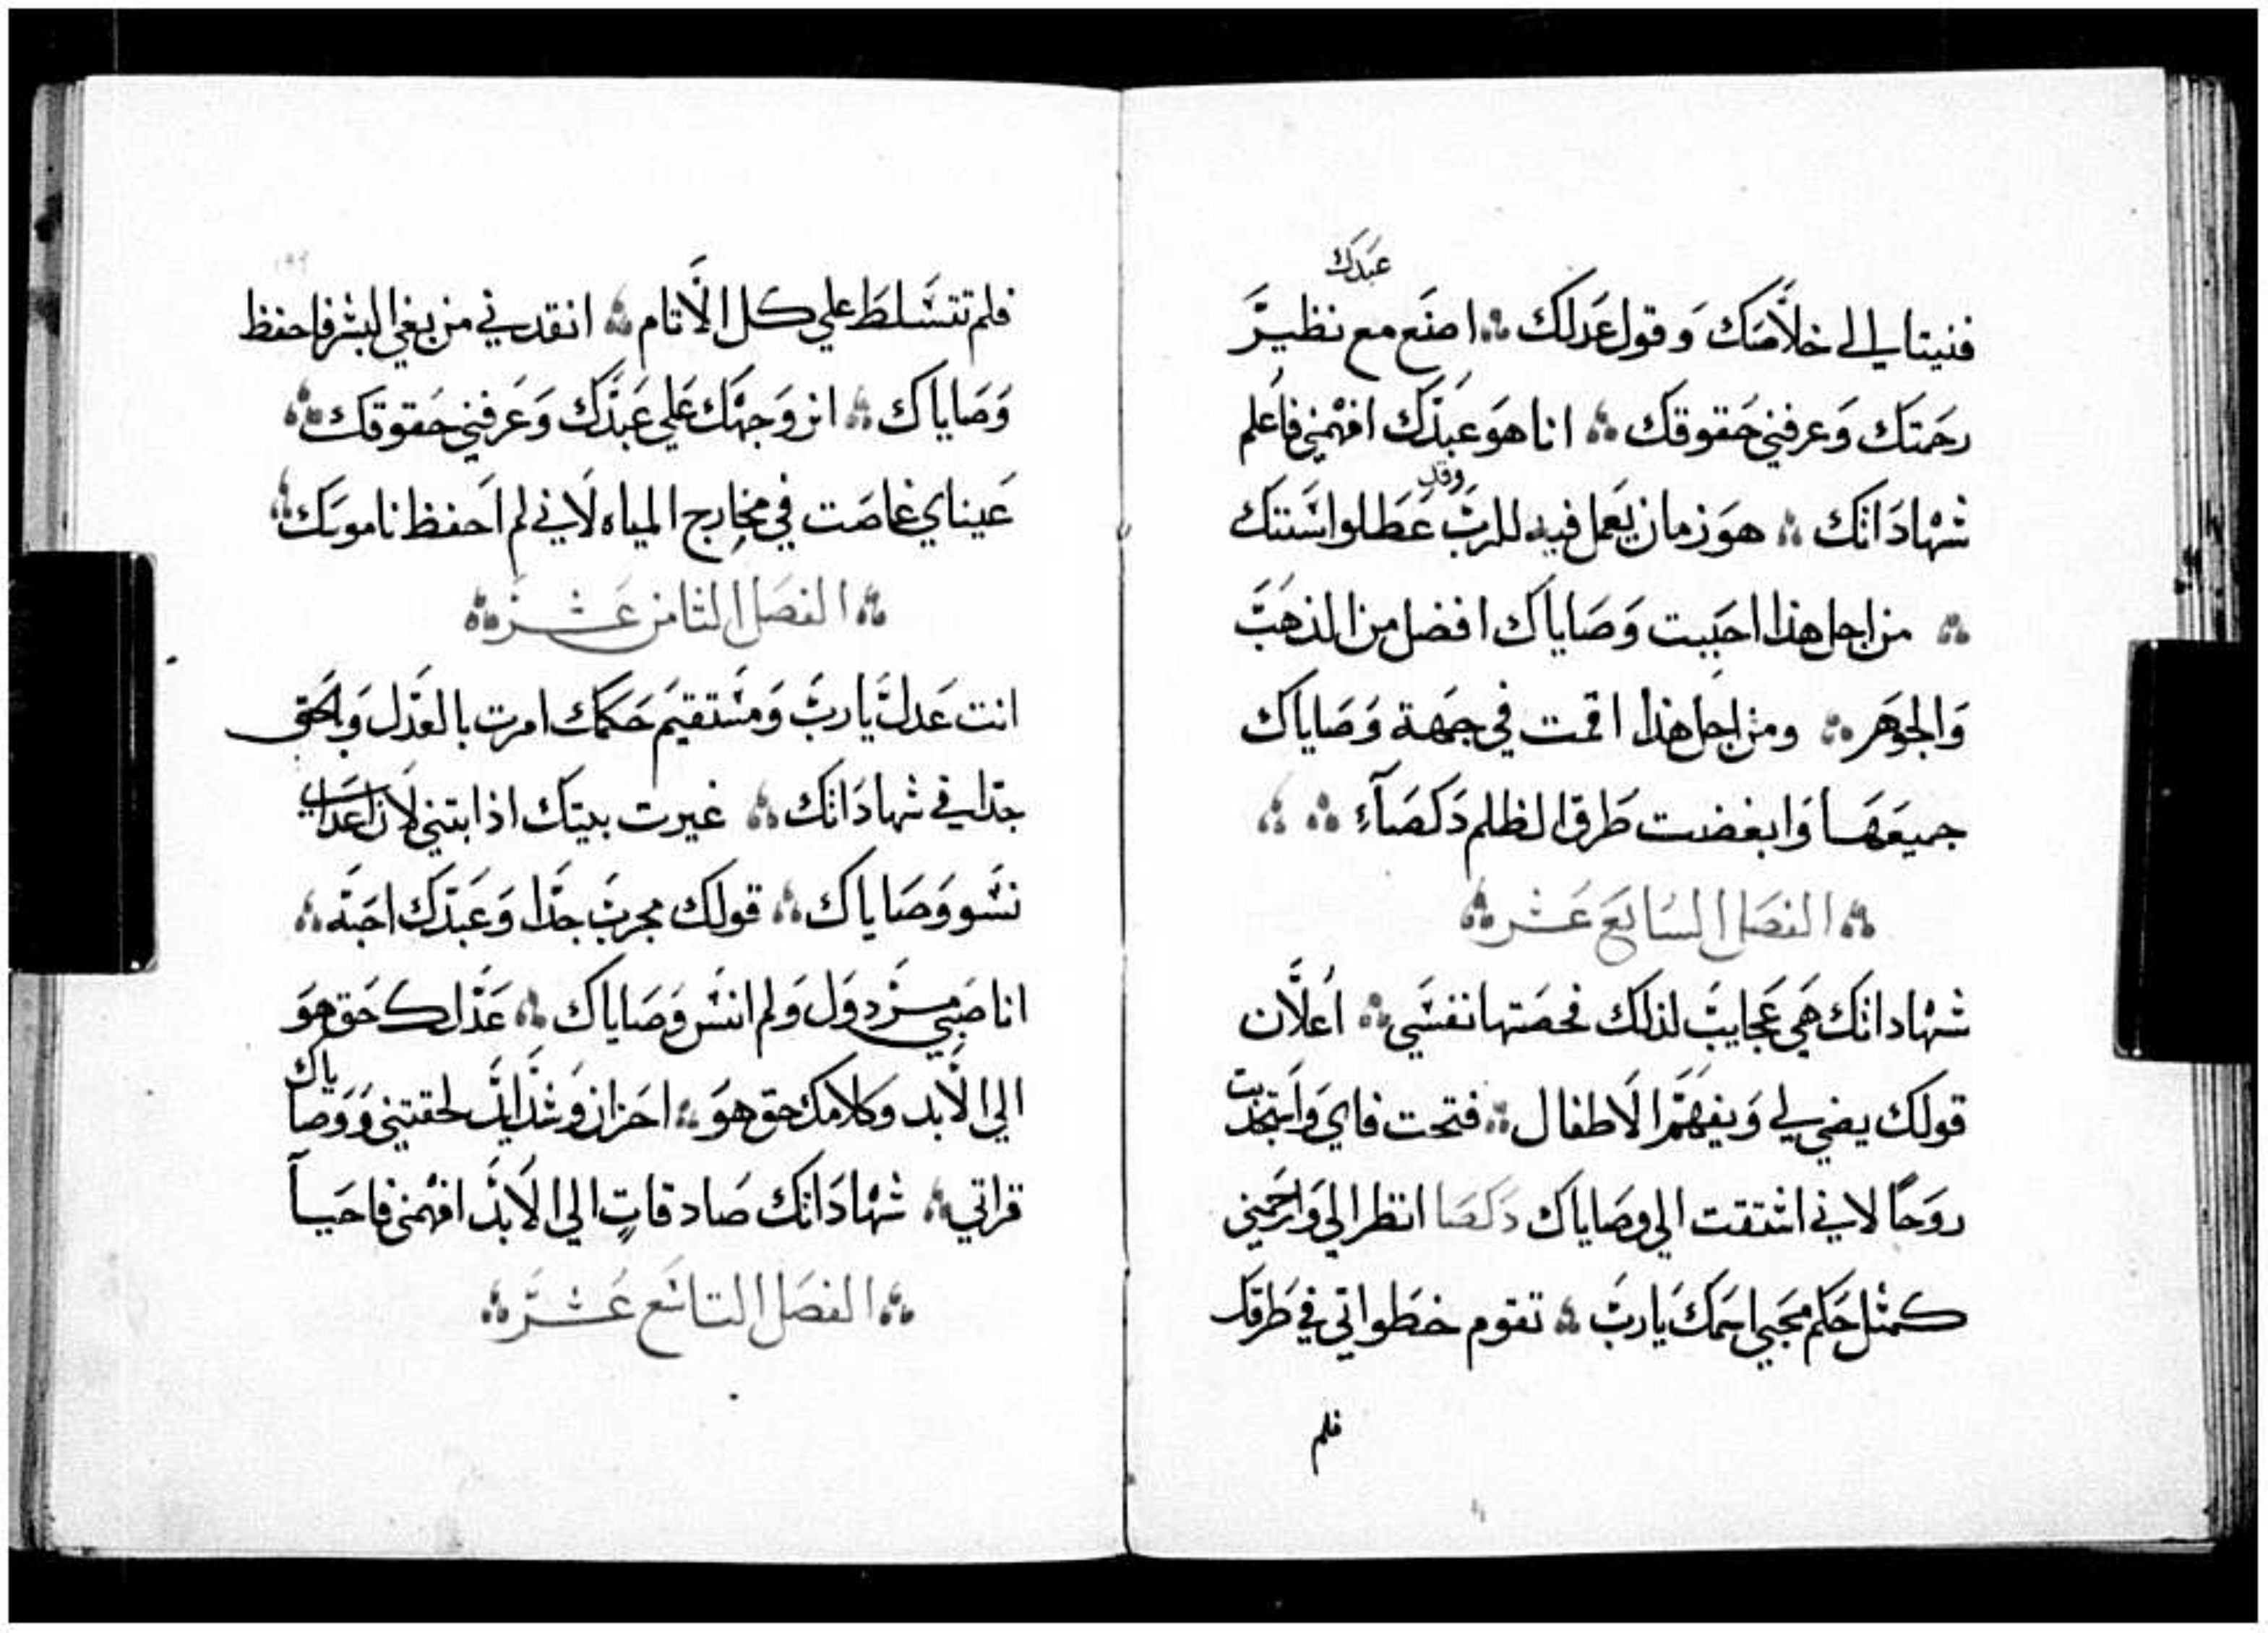 عبدك
فنيتا لي الي خلاصك وقول عدلك ∴ اصنع مع نظير
رحمتك وعرفني حقوقك ∴ انا هو عبدك افهمني فاعلم
شهاداتك ∴ هو زمان يعمل فيه للرب وقد عطلوا سنتك
∴ من اجل هذا احببت وصاياك افضل من الذهب
والجوهر ∴ ومن اجل هذا اقمت في جهة وصاياك
جميعها وابغضت طرق الظلم دكصاء ∴ ∴
∴ الفصل السابع عشر ∴
شهاداتك هي عجايب لذلك فحصتها نفسي ∴ اعلان
قولك يضي لي ويفهم الاطفال ∴ فتحت فاي واستجذبت
روحا لاني اشتقت الي وصاياك دكصا انظر الي وارحمني
كمثل حكم محبي اسمك يارب ∴ تقوم خطواتي في طرقك
فلم
فلم تتسلط علي كل الاثام ∴ انقدني من بغي البشر فاحفظ
وصاياك ∴ انر وجهك علي عبدك وعرفني حقوقك ∴
عيناي غاصت في مخارج المياه لاني لم احفظ ناموسك ∴
∴ الفصل الثامن عشر ∴
انت عدل يارب ومستقيم حكمك امرت بالعدل وبالحق
جدا في شهاداتك ∴ غيرت بيتك اذابتني لان اعداي
نسو وصاياك ∴ قولك مجرب جدا وعبدك احبه ∴
انا صبي مزدول ولم انس وصاياك ∴ عدلك حق هو
الي الابد وكلامك حق هو ∴ احزان وشدايد لحقتني ووصاياك
قراتي ∴ شهاداتك صادقات الي الابد افهمني فاحيا
∴ الفصل التاسع عشر ∴